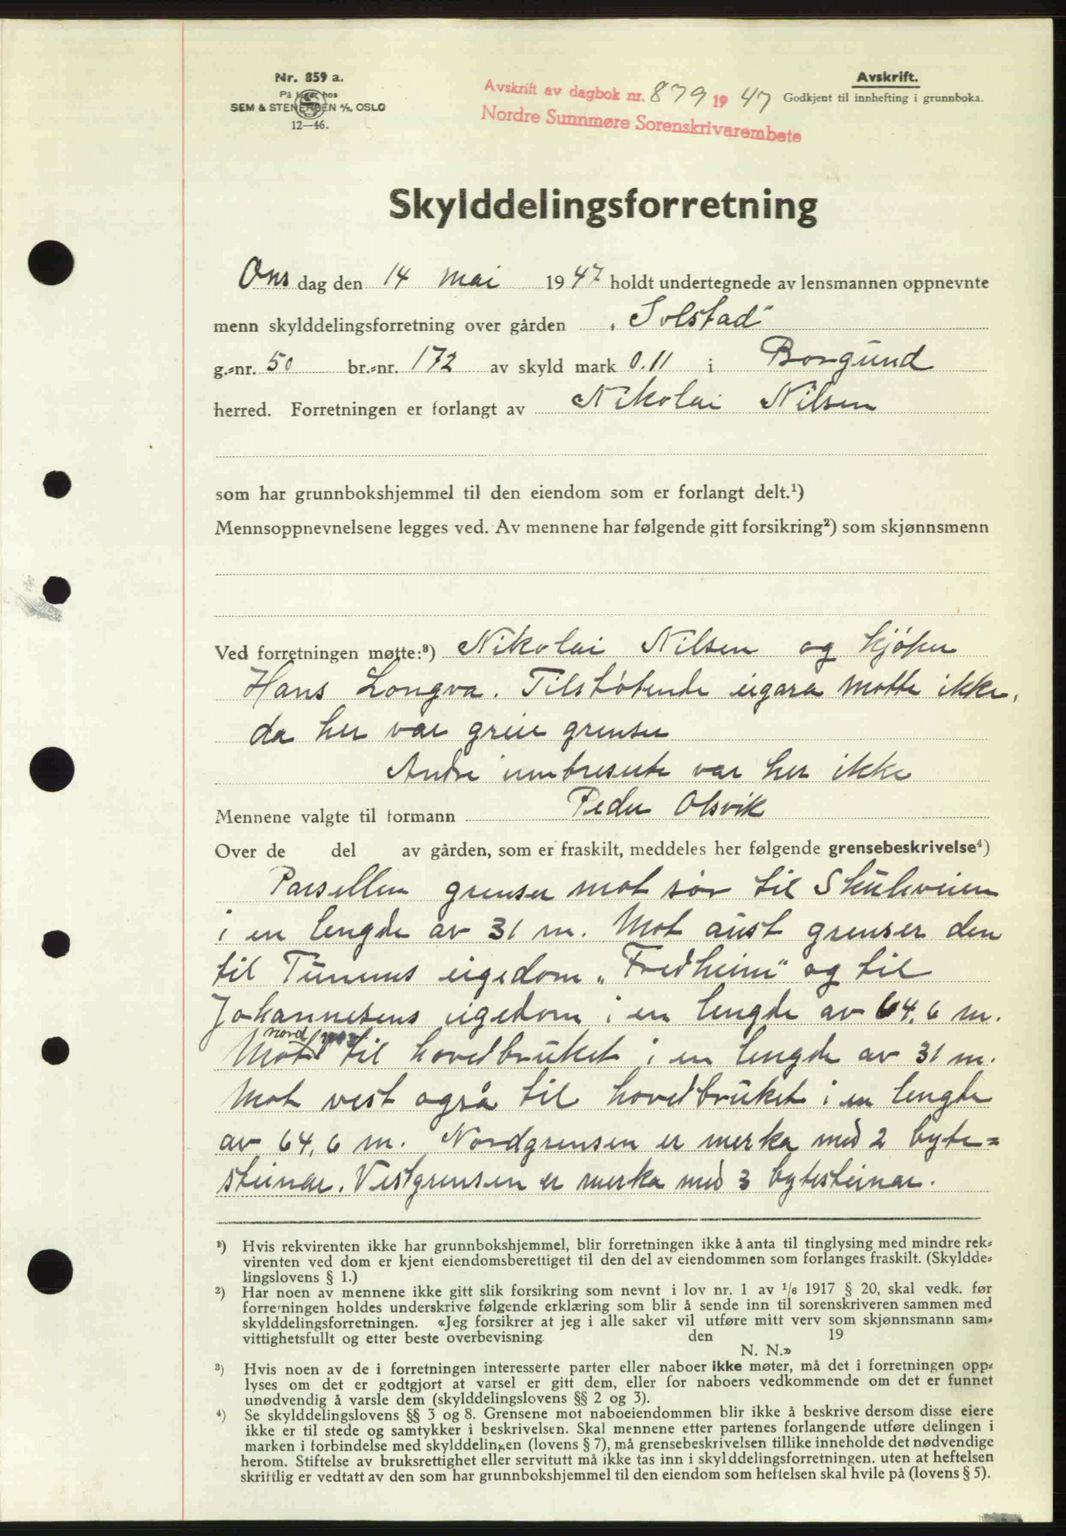 Nr. 859 a.
På lager hos
SEM & STENERSEN A/S, OSLO
12—46.
Avskrift av dagbok nr. 879 1947
Nordre Sunnmøre Sorenskrivarembete
Avskrift.
Godkjent til innhefting i grunnboka.
Skylddelingsforretning
Onsdag den 14 mai 1947 holdt undertegnede av lensmannen oppnevnte
menn skylddelingsforretning over gården „Solstad"
g.-nr. 50 br.-nr. 172 av skyld mark 0.11 i Borgund
herred. Forretningen er forlangt av Nikolai Nilsen
som har grunnbokshjemmel til den eiendom som er forlangt delt.¹)
Mennsoppnevnelsene legges ved. Av mennene har følgende gitt forsikring²) som skjønnsmenn
Ved forretningen møtte:³) Nikolai Nilsen og kjøper
Hans Longva. Tilstøtende eigara møtte ikke,
da her var greie grenser
Andre var her ikke
Mennene valgte til formann Peder Olsvik
Over de del av gården, som er fraskilt, meddeles her følgende grensebeskrivelse⁴)
Parsellen grenser mot sør til Skuleveien
i en lengde av 31 m. Mot aust grenser den
til eigedom „Fredheim" og til
Johannesens eigedom i en lengde av 64,6 m.
Mot nord til hovedbruket i en lengde av 31 m.
Mot vest også til hovedbruket i en lengde
av 64,6 m. Nordgrensen er merka med 2 byte-
steinar. Vestgrensen er merka med 3 bytesteinar.
¹) Hvis rekvirenten ikke har grunnbokshjemmel, blir forretningen ikke å anta til tinglysing med mindre rek-
virenten ved dom er kjent eiendomsberettiget til den del av eiendommen som forlanges fraskilt. (Skyldde-
lingslovens § 1.)
²) Har noen av mennene ikke gitt slik forsikring som nevnt i lov nr. 1 av 1/6 1917 § 20, skal vedk. før
forretningen holdes underskrive følgende erklæring som blir å sende inn til sorenskriveren sammen med
skylddelingsforretningen. «Jeg forsikrer at jeg i alle saker vil utføre mitt verv som skjønnsmann sam-
vittighetsfullt og etter beste overbevisning den 19
N. N.»
³) Hvis noen av de i forretningen interesserte parter eller naboer ikke møter, må det i forretningen opp-
lyses om det er godtgjort at varsel er gitt dem, eller for naboers vedkommende om det er funnet
unødvendig å varsle dem (skylddelingslovens §§ 2 og 3).
⁴) Se skylddelingslovens §§ 3 og 8. Grensene mot naboeiendommen blir ikke å beskrive dersom disse eiere
ikke er til stede og samtykker i beskrivelsen. Skal mennene etter partenes forlangende utføre delingen i
marken i forbindelse med skylddelingen (lovens § 7), må grensebeskrivelsen tillike inneholde det nødvendige
herom. Stiftelse av bruksrettighet eller servitutt må ikke tas inn i skylddelingsforretningen, uten at heftelsen
skriftlig er vedtatt av den som har grunnbokshjemmel til den eiendom som heftelsen skal hvile på (lovens § 5).